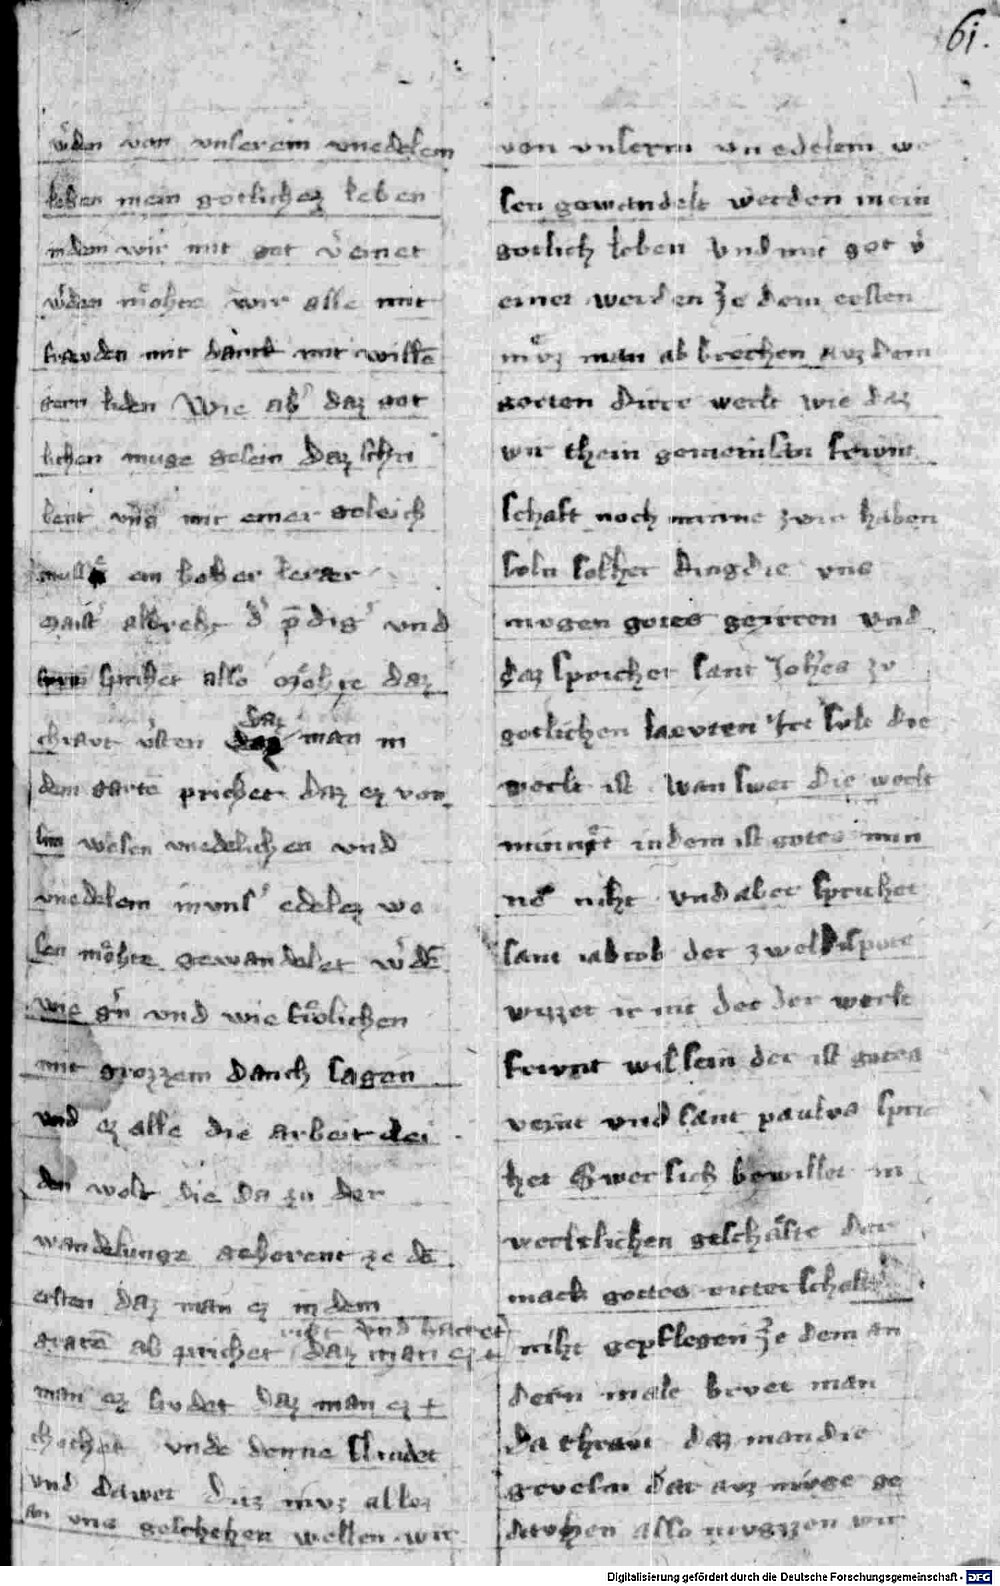 61.
wͤden von unserem unedelem
leben mein gotlichez leben
indem wir mit got vͤeinet
wͤden moͤhte wir alle mit
frauden mit danck mit willē
gern liden Wie abͤ daz got
lichen muge gesein daz schri
bent uns mit einer geleich
ein hoher lerer
maistͤ albreht dͤ p̄digͤ und
sprichet also moͤhte daz
chraut daz man in
dem garte prichet daz ez von
sim wesen unedelichen und
unedelem in unsͤ edelez we
sen moͤhte gewandelet wͤdē
wie gͤn und wie froͤlichen
mit grozzem danch sagen
und ez alle die arbeit
den wolt die da zu der
wandelunge gehorent ze dē
ersten daz man ez in dem
garte ab prichet daz man ez
und
man ez sudet daz man ez
chochet unde denne sludet
und dawet daz muz allez
an uns geschehen wellen wir
von unserm unedelem we
sen gewandelt werden in ein
gotlich leben und mit got vͤ
einet werden ze dem ersten
muͤz man ab brechen auz dem
gorten dirre werlt wie daz
wir chein gemeinsam frivnt
schaft noch minne zwie haben
soln solher ding die uns
mugen gotes geirren und
daz sprichet sant Johēs zu
gotlichen laeuten die
werlt ist wan swer die werlt
minnet in dem ist gotes min
ne niht und aber sprichet
sant iakob der zwelfpote
wizzet ir nit der der werlt
frivnt wil sein der ist gotes
veint und sant paulus spri
chet Swer sich bewillet in
werltlichen geschaͤfte der
mack gottes ritterschaft
niht gepflegen ze dem an
dern male bruet man
da chraut daz man die
grueln dar auz muge ge
drvhen also muezzen wir
Digitalisierung gefördert durch die Deutsche Forschungsgemeinschaft - DFG